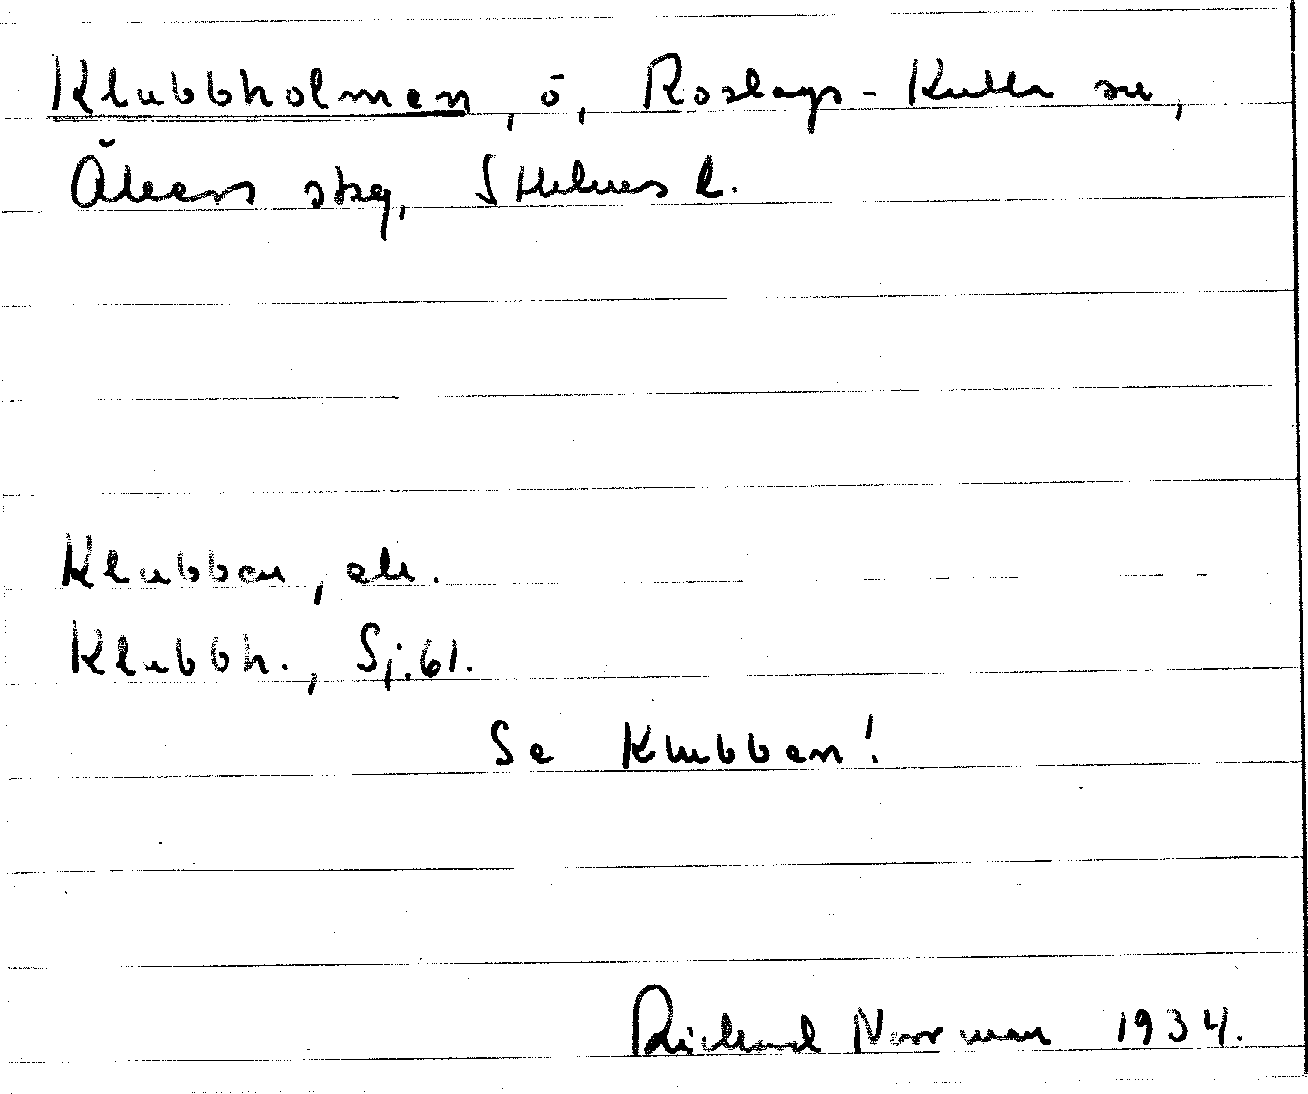 Klubbholmen, ö, Roslags-Kulla sn,
Åkers skg, Sthlms l.
Klubben, ek.
Klubbh., Sj.61.
Se Klubben!
Richard Norrman 1934.